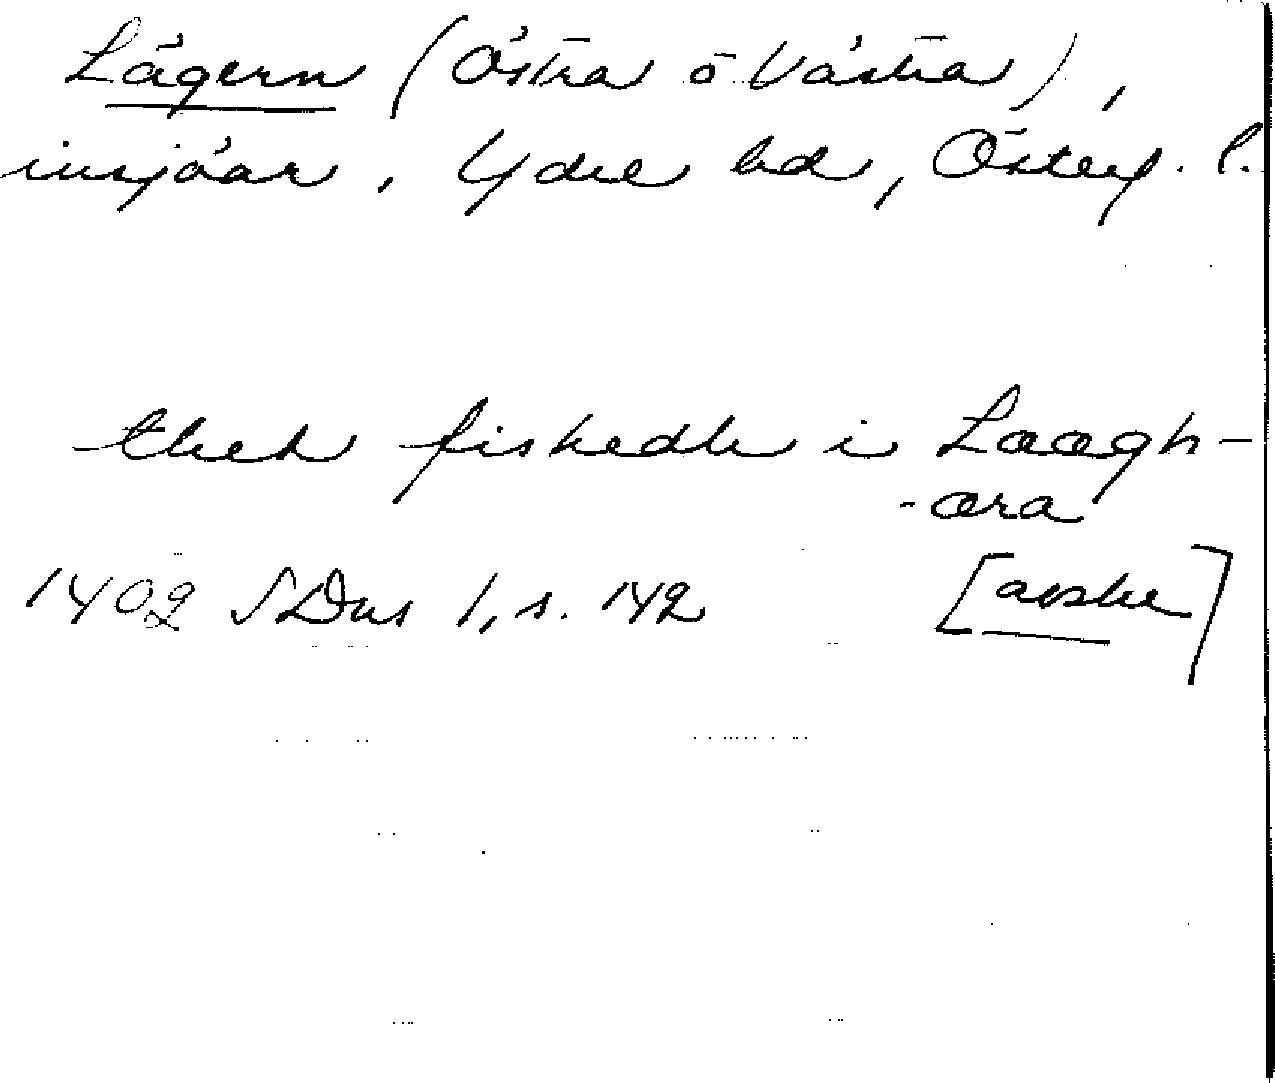 Lägern (Östra o Västra),
insjöar, Ydre hd, Österg. l.
thet fiskedke i Laagh-
-æra
1402 SDns 1, s. 142 [avskr]